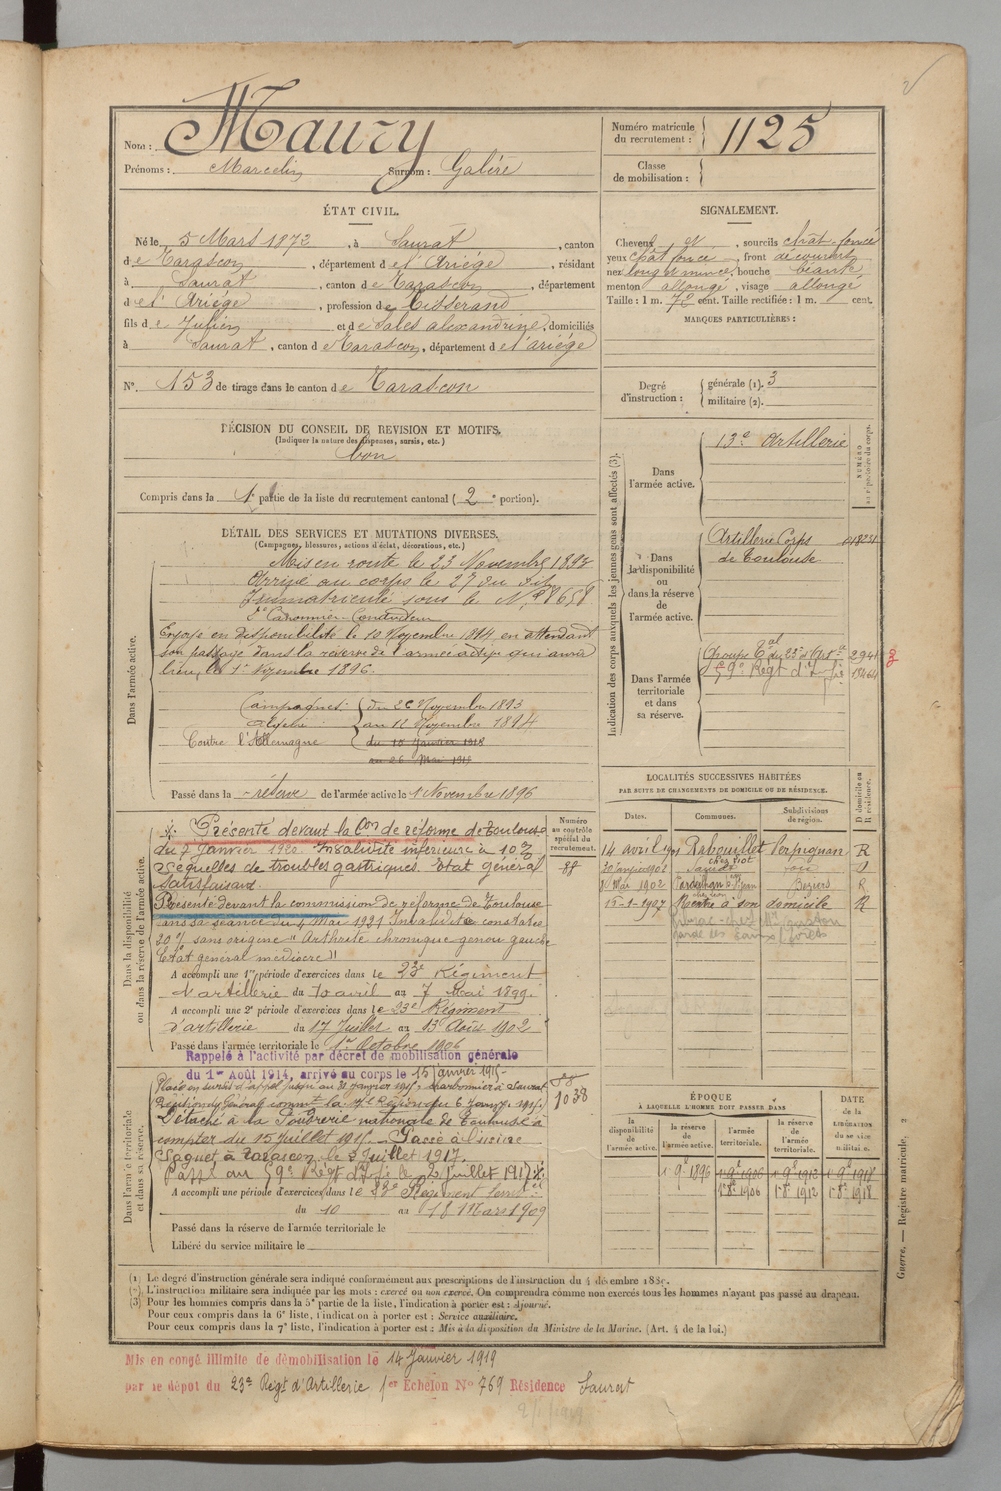 Nom : Maury
Prénoms : Marcelin Surnom : Galère
Numéro matricule du recrutement : 1125
Classe de mobilisation :
ÉTAT CIVIL.
Né le 5 Mars 1872, à Saurat, canton
de Tarascon, département de l'Ariège, résidant
à Saurat, canton de Tarascon, département
de l'Ariège, profession de Tisserand
fils de Julien et de Sales alexandrine, domiciliés
à Saurat, canton de Tarascon, département de l'ariège
N° 153 de tirage dans le canton de Tarascon
DÉCISION DU CONSEIL DE REVISION ET MOTIFS.
(Indiquer la nature des dispenses, sursis, etc.)
bon
Compris dans la 1e partie de la liste du recrutement cantonal ( 2 e portion).
SIGNALEMENT.
Cheveux et , sourcils chât. foncé
yeux chât foncé, front découvert
nez long et mince, bouche béante
menton allongé, visage allongé
Taille : 1 m. 72 cent. Taille rectifiée : 1 m. cent.
MARQUES PARTICULIÈRES :
Degré d'instruction :
générale (1). 3
militaire (2).
DÉTAIL DES SERVICES ET MUTATIONS DIVERSES.
(Campagnes, blessures, actions d'éclat, décorations, etc.)
Dans l'armée active.
Mis en route le 23 Novembre 1893
Arrivé au corps le 27 du dit
Immatriculé sous le N° 8658
2e Canonnier-Conducteur
Envoyé en disponibilité le 10 Novembre 1894, en attendant
son passage dans la réserve de l'armée active qui aura
lieu le 1er Novembre 1896.
Campagnes : du 26 Novembre 1893
Algérie au 11 Novembre 1894
Contre l'Allemagne du 10 Janvier 1918
au 26 Mai 1919
Passé dans la réserve de l'armée active le 1 Novembre 1896
Indication des corps auxquels les jeunes gens sont affectés (3).
NUMÉRO au répertoire du corps.
Dans l'armée active.
13e Artillerie
Dans la disponibilité ou dans la réserve de l'armée active.
Artillerie Corps
de Toulouse
Dans l'armée territoriale et dans sa réserve.
Groupe Tal du 23e d'Art ie
59e Régt d'Infie
LOCALITÉS SUCCESSIVES HABITÉES
PAR SUITE DE CHANGEMENTS DE DOMICILE OU DE RÉSIDENCE.
Dates. Communes. Subdivisions de région. D domicile ou R résidence.
14 avril 1901 Rabouillet Perpignan R
Mai 1902 Béziers R
15-1-1907 Rentré à son domicile R
Dans la disponibilité ou dans la réserve de l'armée active.
Numéro au contrôle spécial du recrutement.
88
Présenté devant la Con de réforme de Toulouse
du 7 Janvier 1920 Invalidité inférieure à 10 %
Séquelles de troubles gastriques. Etat général
Satisfaisant.
Présenté devant la commission de réforme de Toulouse
dans sa séance du 4 Mai 1921 Invalidité constatée
20 % sans origine "Arthrite chronique genou gauche
Etat général médiocre"
A accompli une 1re période d'exercices dans le 23e Régiment
d'artillerie du 10 avril au 7 Mai 1899.
A accompli une 2e période d'exercices dans le 23e Régiment
d'artillerie du 17 Juillet au 13 Août 1902
Passé dans l'armée territoriale le 1er Octobre 1906
Rappelé à l'activité par décret de mobilisation générale
du 1er Août 1914, arrivé au corps le 15 Janvier 1915
Dans l'armée territoriale et dans sa réserve.
Placé en sursis d'appel jusqu'au 31 Janvier 1915 : charbonnier à Saurat
Détaché à la Poudrerie nationale de Toulouse à
compter du 15 Juillet 1915. Passé à l'usine
Paquet à Tarascon le 3 Juillet 1917.
Passé au 59e Régt d'Infie le 2 Juillet 1917
A accompli une période d'exercices dans le 23e Régiment
du 10 au 18 Mars 1909
Passé dans la réserve de l'armée territoriale le
Libéré du service militaire le
88
1038
ÉPOQUE
À LAQUELLE L'HOMME DOIT PASSER DANS
la disponibilité de l'armée active.
la réserve de l'armée active.
l'armée territoriale.
la réserve de l'armée territoriale.
DATE de la LIBÉRATION du service militaire.
1 9e 1896 1 9e 1906 1 9e 1912 1 9e 1918
1 8e 1906 1 8e 1912 1 8e 1918
(1) Le degré d'instruction générale sera indiqué conformément aux prescriptions de l'instruction du 4 décembre 1889.
(2) L'instruction militaire sera indiquée par les mots : exercé ou non exercé. On comprendra comme non exercés tous les hommes n'ayant pas passé au drapeau.
(3) Pour les hommes compris dans la 5e partie de la liste, l'indication à porter est : Ajourné.
Pour ceux compris dans la 6e liste, l'indication à porter est : Service auxiliaire.
Pour ceux compris dans la 7e liste, l'indication à porter est : Mis à la disposition du Ministre de la Marine. (Art. 4 de la loi.)
Guerre. — Registre matricule, 2
Mis en congé illimité de démobilisation le 14 Janvier 1919
par le dépôt du 23e Régt d'Artillerie 1er Échelon No 769 Résidence Saurat